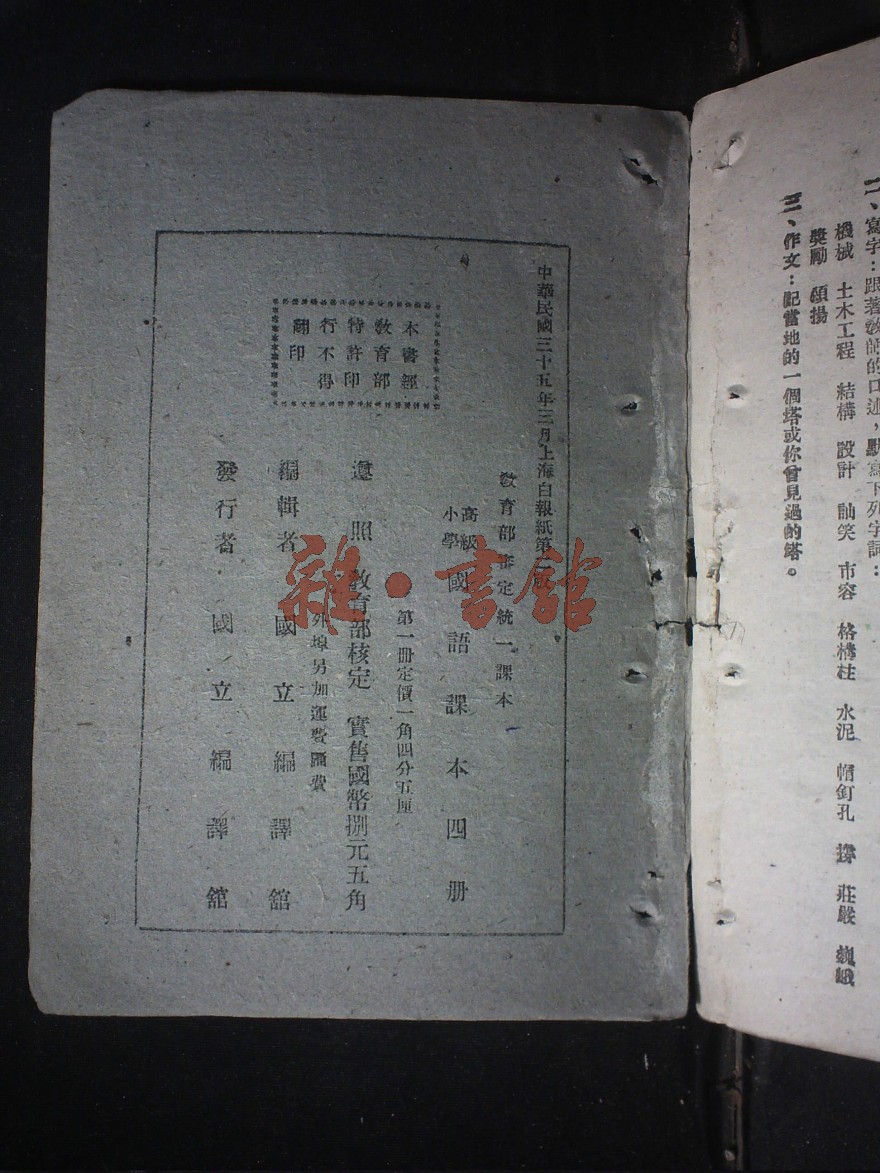 二、寫字：跟著教師的口述，默寫下列字詞：
機械　土木工程　結構　設計　訕笑　市容　格構柱　水泥　帽釘孔　莊嚴　巍峨
獎勵　頌揚
三、作文：記當地的一個塔或你曾見過的塔。
中華民國三十五年三月上海白報紙第二版
教育部審定統一課本
高級
小學
國語課本四册
第一册定價一角四分五厘
遵照教育部核定　實售國幣捌元五角
外埠另加運費匯費
編輯者　國立編譯館
發行者　國立編譯館
本書經
教育部
特許印
行不得
翻印
雜·書館